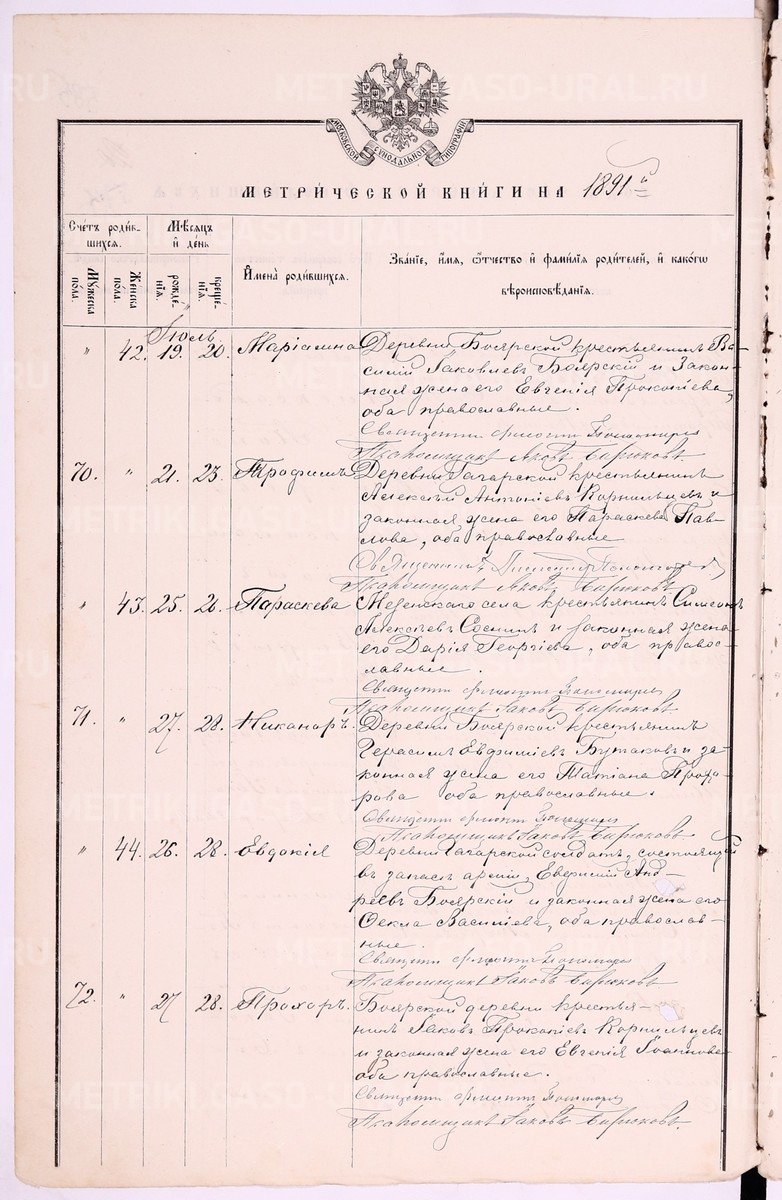 МОСКОВСКОЙ СѴНОДАЛЬНОЙ ТИПОГРАФІИ
МЕТРИЧЕСКОЙ КНИГИ НА 1891й
Счетъ родив-
шихся.
Мѣсяцъ
и день
Имена родившихся.
Званіе, имя, отчество и фамилія родителей, и какого
вѣроисповѣданія.
Мужеска пола.
Женска пола.
рожде-
нія.
креще-
нія.
Іюль
" 42. 19. 20. Маріамна Деревни Боярской крестьянинъ Ва-
силій Іаковлевъ Боярскій и Закон-
ная жена его Евгенія Прокопіева,
оба православные.
Священникъ
Псаломщикъ Іаковъ Бирюковъ
70. " 21. 23. Трофимъ Деревни Гагарской крестьянинъ
Алексѣй Антоніевъ Корнильцевъ и
законная жена его Параскева Пав-
лова, оба православные
Священникъ
Псаломщикъ Іаковъ Бирюковъ
" 43. 25. 26. Параскева Мезенского села крестьянинъ Симеонъ
Алексѣевъ Соснинъ и законная жена
его Дарія Георгіева, оба право-
славные.
Священникъ
Псаломщикъ Іаковъ Бирюковъ
71. " 27. 28. Никаноръ. Деревни Боярской крестьянинъ
Герасимъ Евфиміевъ Бутаковъ и за-
конная жена его Татіана Прохо-
рова оба православные.
Священникъ
Псаломщикъ Іаковъ Бирюковъ
" 44. 26. 28. Евдокія Деревни Гагарской солдатъ, состоящій
въ запасѣ арміи, Евфимій Анд-
реевъ Боярскій и законная жена его
Ѳекла Василіева, оба православ-
ные.
Священникъ
Псаломщикъ Іаковъ Бирюковъ
72. " 27 28. Прохоръ. Боярской деревни крестья-
нинъ Іаковъ Прокопіевъ Корнильцевъ
и законная жена его Евгенія Іоаннова
оба православные.
Священникъ
Псаломщикъ Іаковъ Бирюковъ.